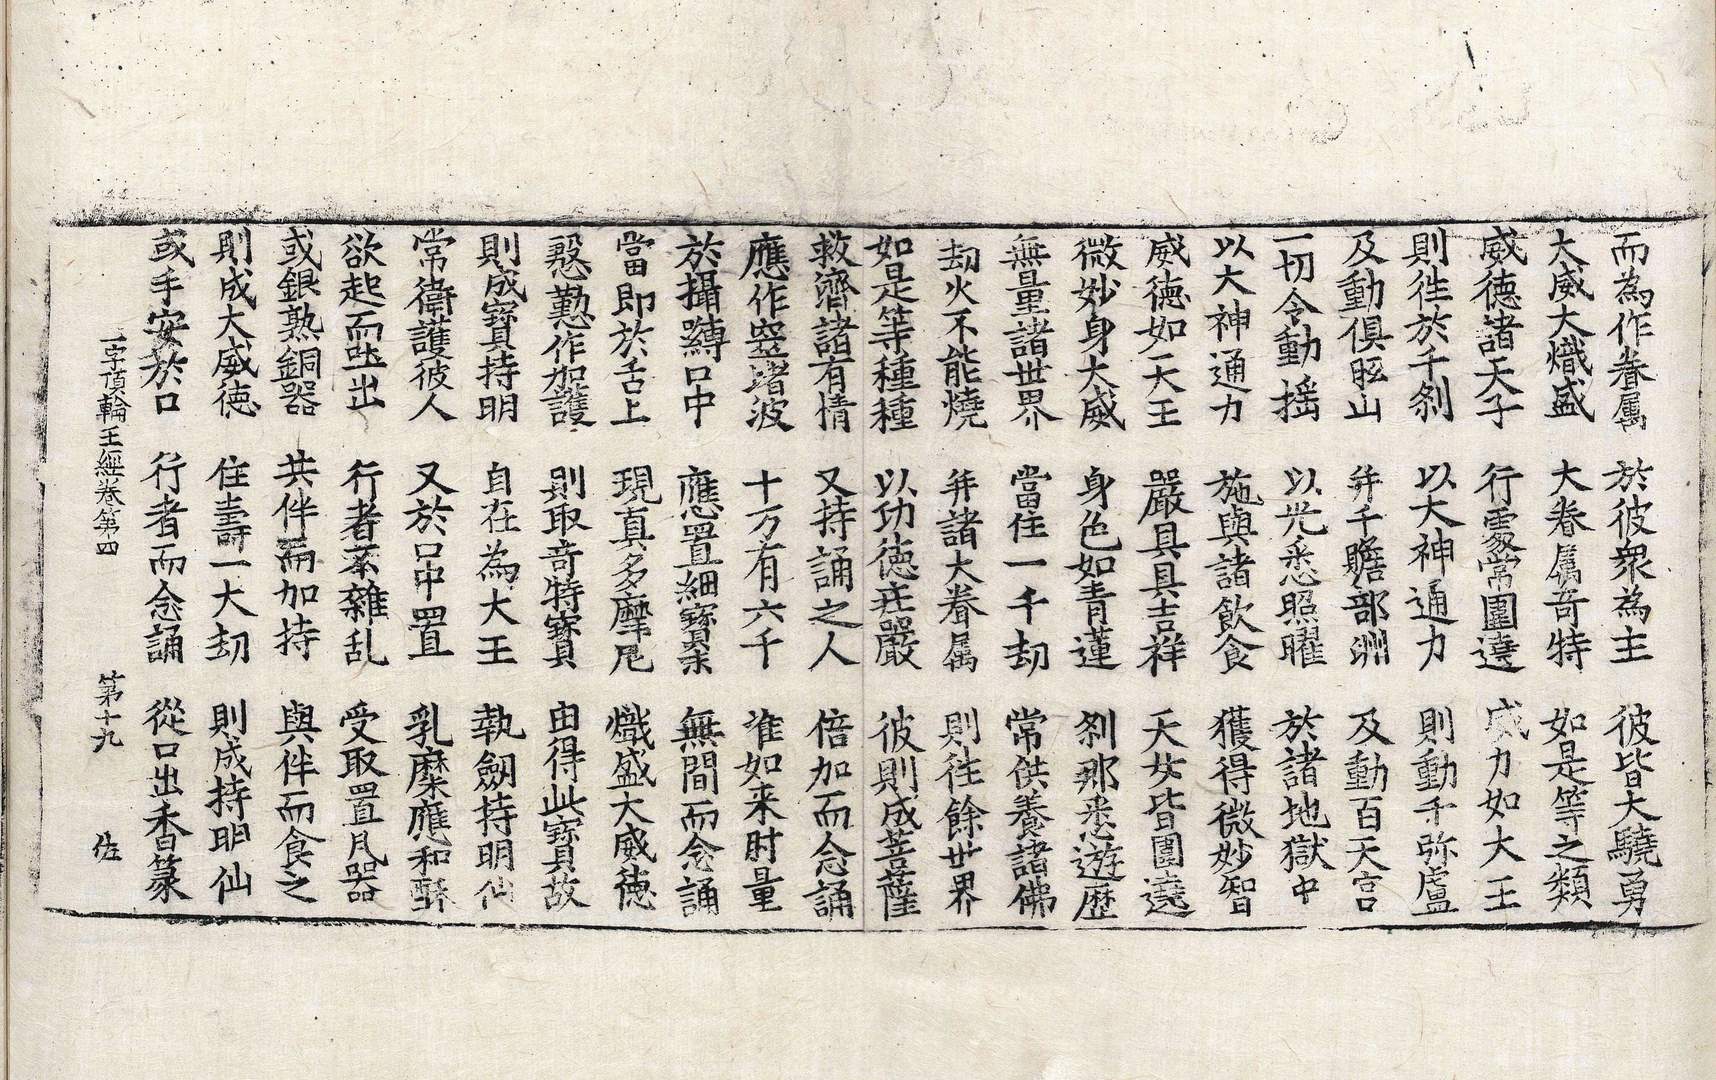 而為作眷属　於彼衆為主　彼皆大驍勇
大威大熾盛　大眷属奇特　如是等之類
威徳諸天子　行處常圍遶　威力如大王
則徃於千刹　以大神通力　則動千弥盧
及動俱胝山　并千贍部洲　及動百天宫
一切令動揺　以光悉照曜　於諸地獄中
以大神通力　施與諸飲食　獲得微妙智
威徳如天王　嚴具具吉祥　天女皆圍遶
微妙身大威　身色如青蓮　刹那悉遊歷
無量諸世界　當住一千劫　常供養諸佛
劫火不能燒　并諸大眷属　則往餘世界
如是等種種　以功徳莊嚴　彼則成菩薩
救濟諸有情　又持誦之人　倍加而念誦
應作窣堵波　十万有六千　准如来肘量
於攝嚩口中　應置細寳　無間而念誦
當即於舌上　現真多摩尼　熾盛大威徳
慇懃作加護　則取奇特寳　由得此寳故
則成寳持明　自在為大王　執劔持明仙
常衛護彼人　又於口中置　乳糜應和酥
欲起而吐出　行者不雜乱　受取置凡器
或銀熟銅器　共伴而加持　與伴而食之
則成大威徳　住壽一大劫　則成持明仙
或手安於口　行者而念誦　從口出香篆
一字頂輪王經卷第四　第十九　佐